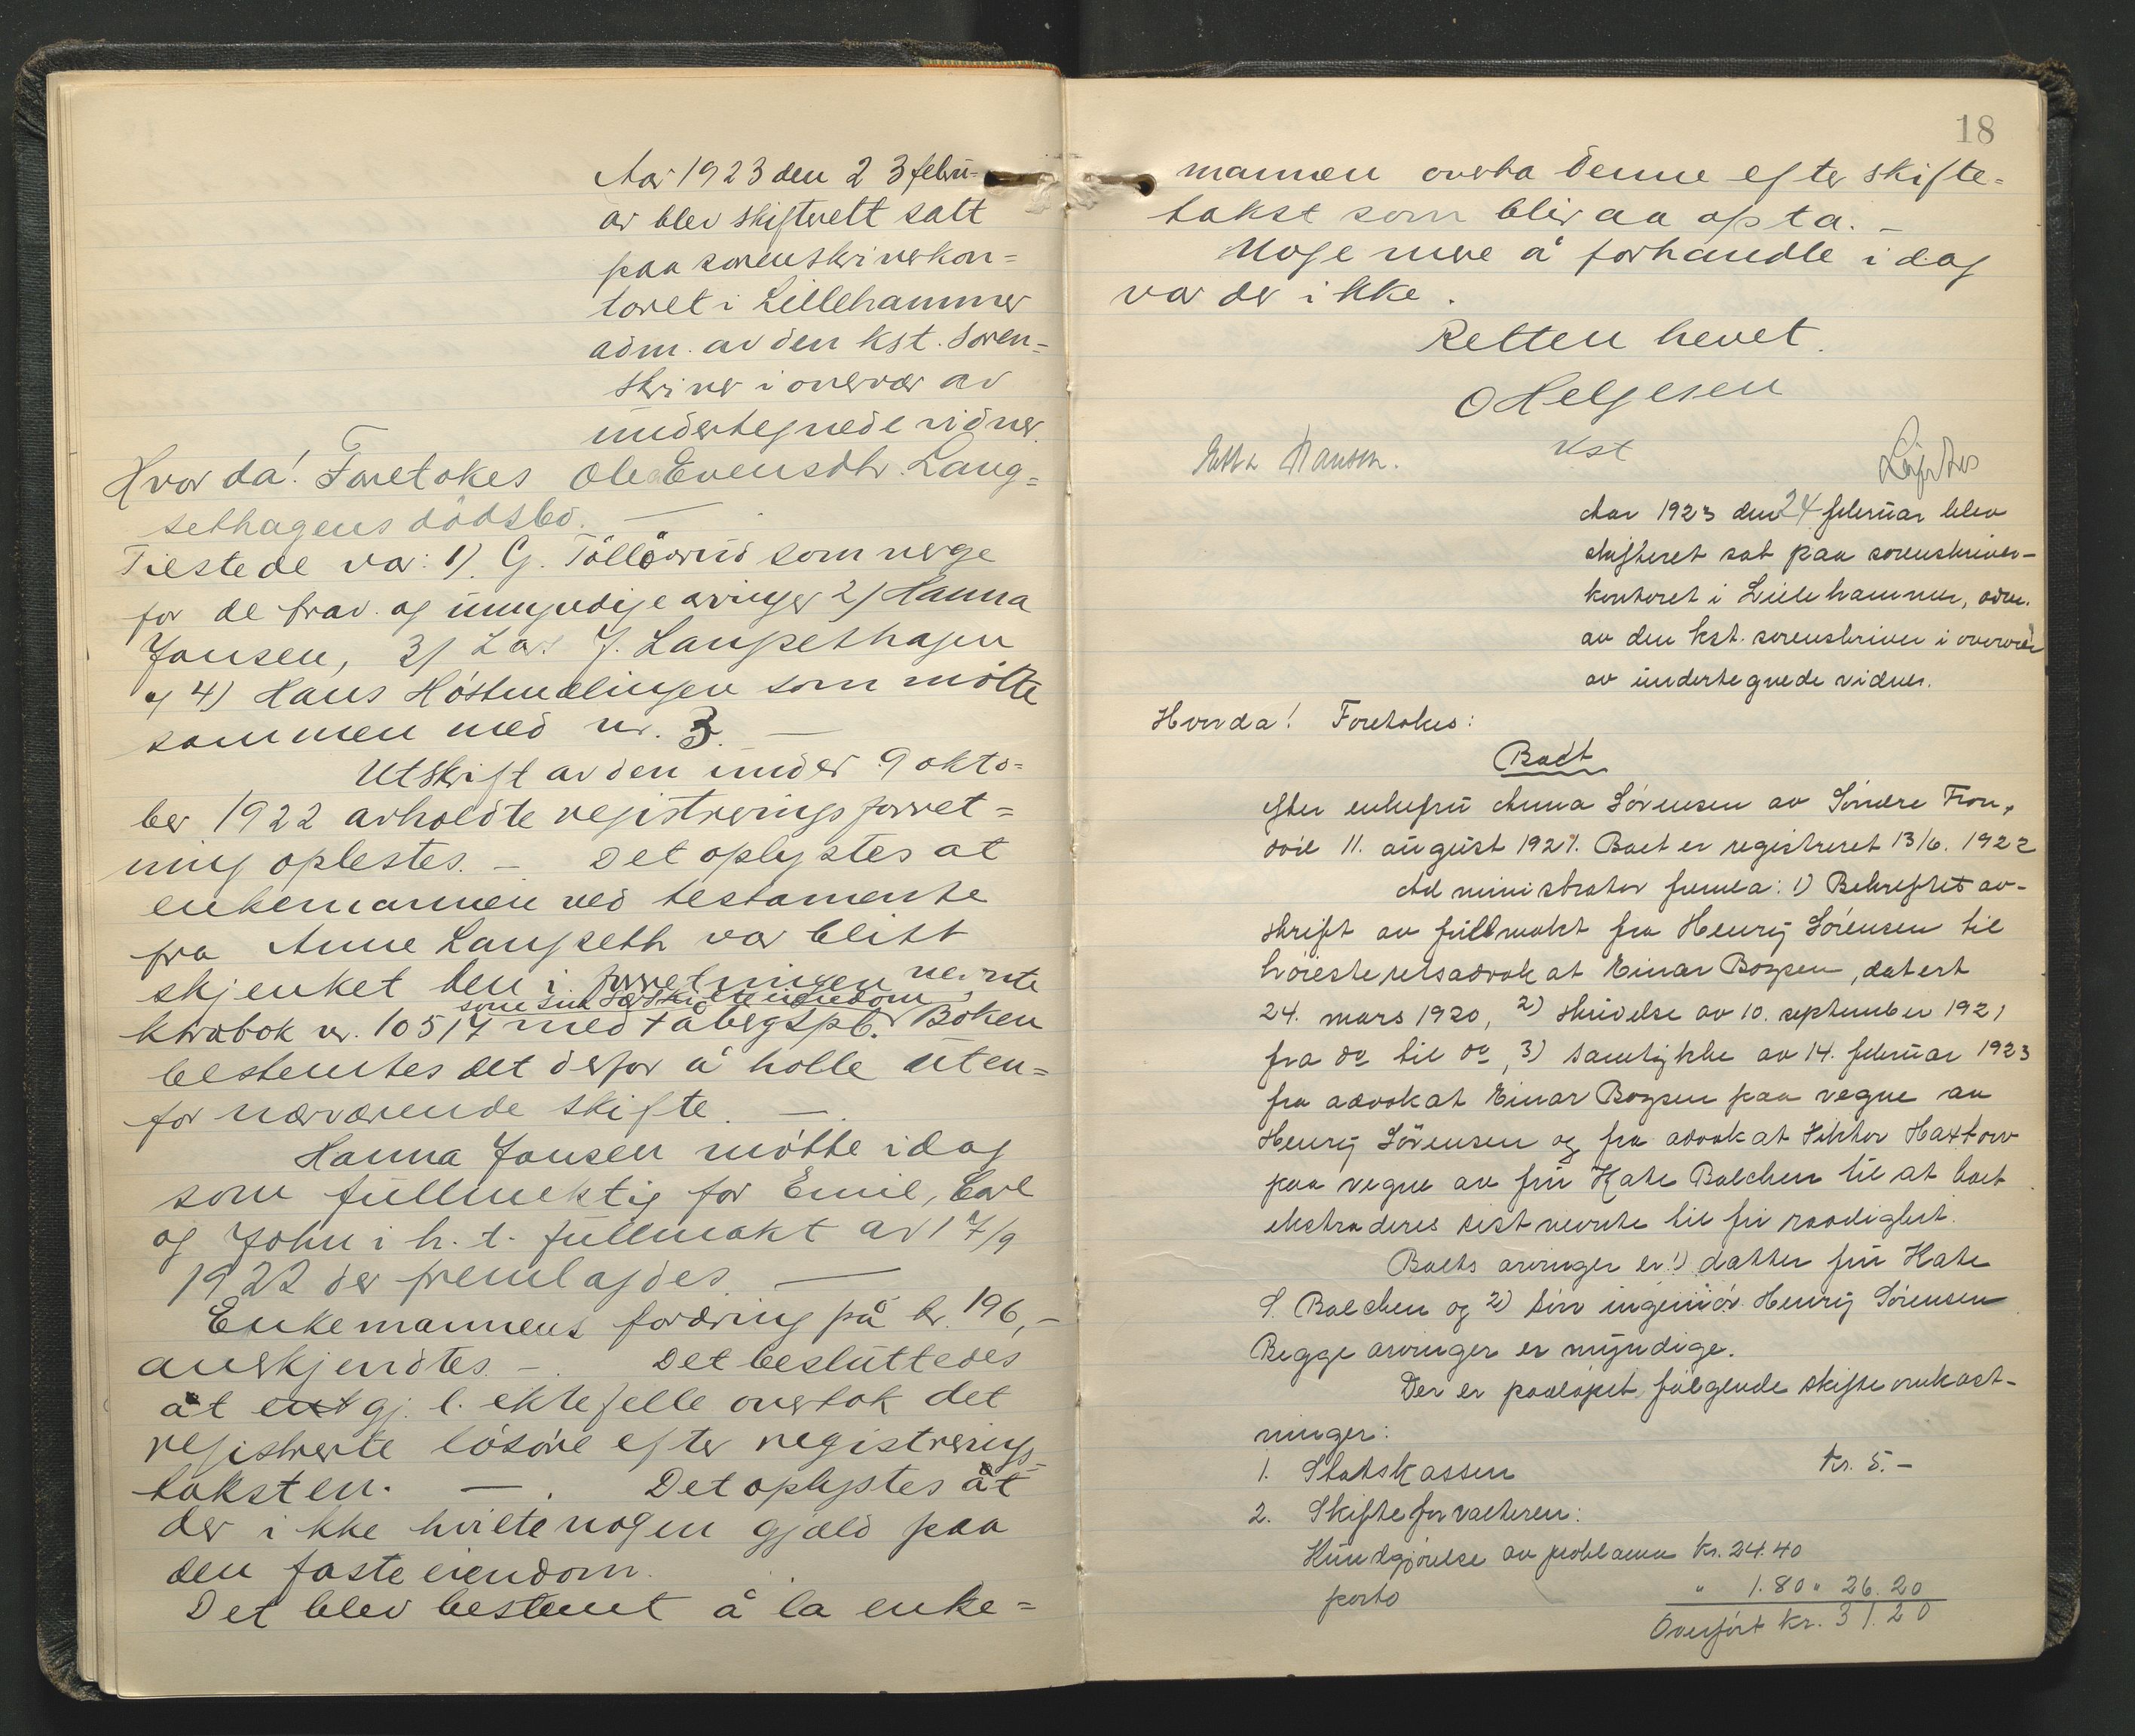 Aar 1923 den 23 febru-
ar blev skifterett satt
paa sorenskriverkon=
toret i Lillehammer
adm. av den kst. soren=
skriver i overvær av
undertegnede vidner.
Hvor da! Foretokes Ole Evensdtr. Lang=
sethagens dödsbo. —
Tilstede var: 1) G. som verge
for de frav. og umyndige arvinger 2) Hanna
Jansen, 3) Lars J. Langsethagen
og 4) Hans Höstmælingen som mötte
sammen med nr. 3. —
Utskrift av den under 9 okto=
ber 1922 avholdte registreringsforret=
ning oplestes. — Det oplystes at
enkemannen ved testamente
fra Anne Langseth var blitt
skjenket den i forretningen nevnte
som sin særskilte eiendom
ktrabok nr. 10517 med Fåbergs spb. Boken
bestemtes det derfor å holle uten=
for nærværende skifte. —
Hanna Jansen mötte idag
som fullmektig for Emil, Carl
og John i h. t. fullmakt av 17/9
1922 der fremlagdes. —
Enkemannens fordring på kr. 196,-
anerkjendtes. — Det besluttedes
at gj. l. ektefelle overtok det
registrerte lösöre efter registrerings=
taksten. — Det oplystes åt
der ikke hvilte nogen gjæld paa
den faste eiendom.
Det blev bestemt å la enke=
18
mannen overta denne efter skifte=
takst som blir aa opta. —
Noge mere å forhandle i dag
var der ikke.
Retten hevet.
O Helgesen
kst
Hansen.
Aar 1923 den 24 februar blev
skifteret sat paa sorenskriver-
kontoret i Lillehammer, adm.
av den kst. sorenskriver i overvær
av undertegnede vidner.
Hvorda! Foretokes:
Boet
efter enkefru Anna Sörensen av Söndre Fron,
död 11. august 1921. Boet er registreret 13/6. 1922
Administrator fremla: 1) Bekreftet av-
skrift av fullmakt fra Henrij Sörensen til
höiesteretsadvokat Einar Bogsen, datert
24. mars 1920, 2) skrivelse av 10. september 1921
fra do til do, 3) samtykke av 14. februar 1923
fra advokat Einar Bogsen paa vegne av
Henrij Sörensen og fra advokat Hektor Haxtow
paa vegne av fru Kate Balchen til at boet
ekstraderes sistnevnte til fri raadighet.
Boets arvinger er 1) datter fru Kate
S. Balchen og 2) sön ingeniör Henrij Sörensen
Begge arvinger er myndige.
Der er paalöpet følgende skifteomkost-
ninger:
1. Statskassen kr. 5.-
2. Skifteforvalteren:
Kundgjörelse av proklama kr. 24.40
porto " 1.80 " 26.20
Overfört kr. 31.20